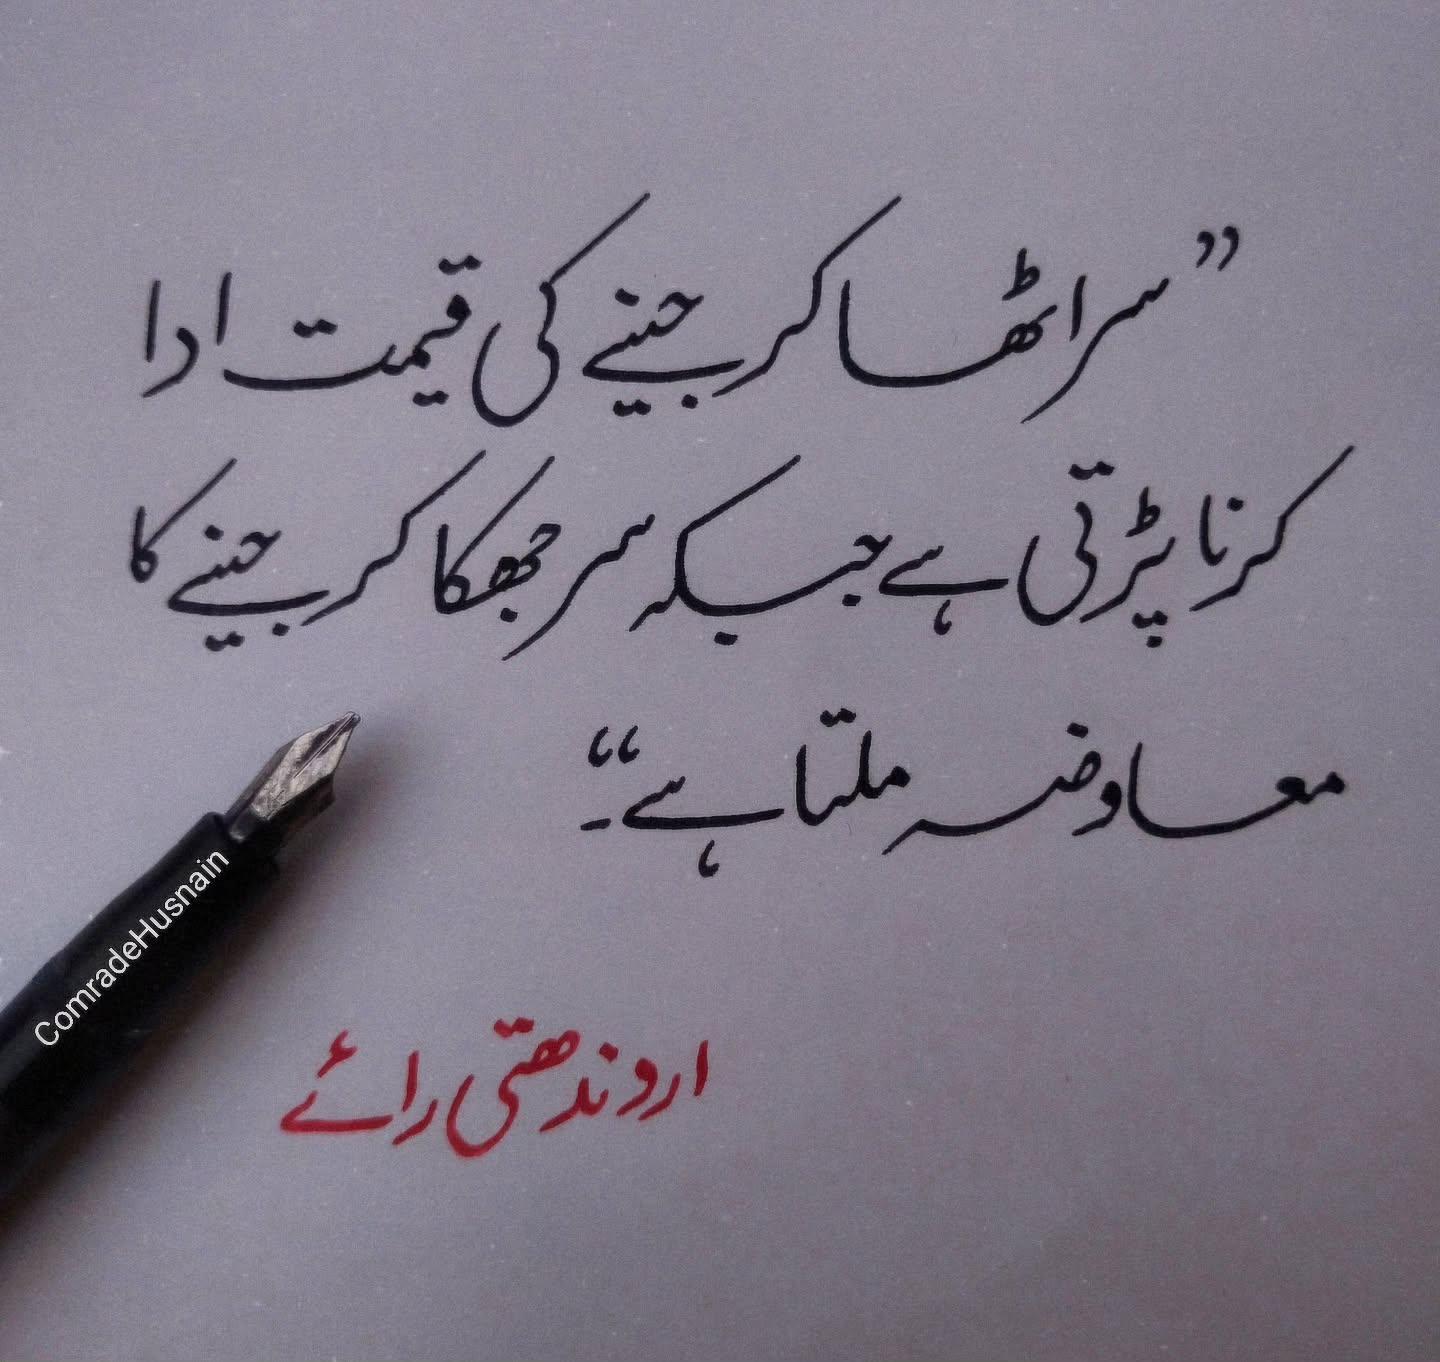 ”سر اٹھا کر جینے کی قیمت ادا
کرنا پڑتی ہے جبکہ سر جھکا کر جینے کا
معاوضہ ملتا ہے۔“
اروندھتی رائے
ComradeHusnain